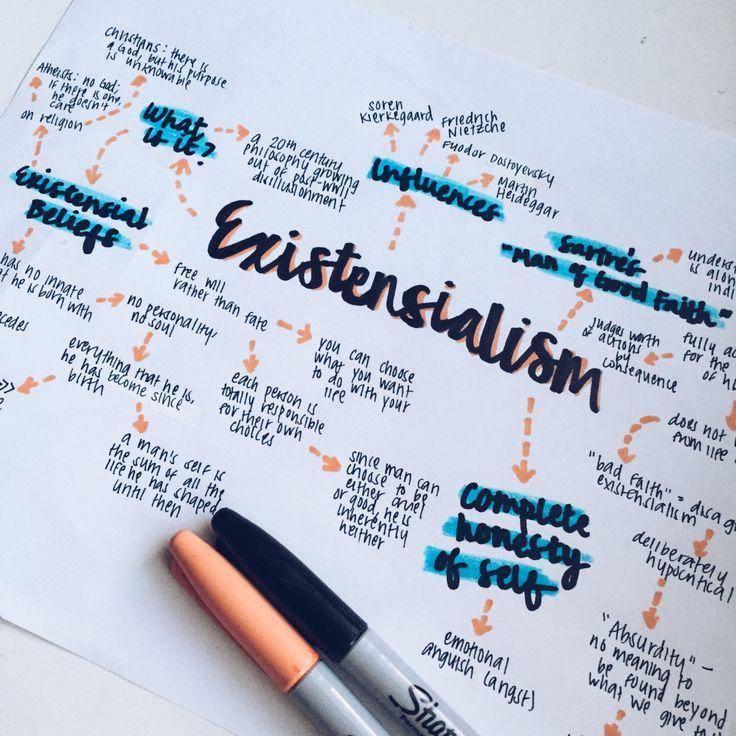 Christians: there is
a God, but his purpose
is unknowable
Atheists: no God;
if there is one,
he doesn't
care
on religion
What
is it?
a 20th century
philosophy growing
out of post-WWII
disillusionment
Soren
Kierkegaard
Friedrich
Nietzche
Fyodor Dostoyevsky
Martin
Heideggar
Influences
Existensialism
Existensial
Beliefs
has no innate
he is born with
no personality/
no soul
everything that he is,
he has become since
birth
a man's self is
the sum of all the
life he has shaped
until then
free will
rather than fate
you can choose
what you want
to do with your
life
each person is
totally responsible
for their own
choices
since man can
choose to be
either cruel
or good, he is
inherently
neither
Sartre's
"Man of Good Faith"
is alon
indi
judges worth
of actions
by
consequence
fully ac
for the
of h
does not
from life
"bad faith" = disag
existensialism
deliberately
hypocritical
"Absurdity" -
no meaning to
be found beyond
what we give
complete
honesty
of self
emotional
anguish (angst)
Sha